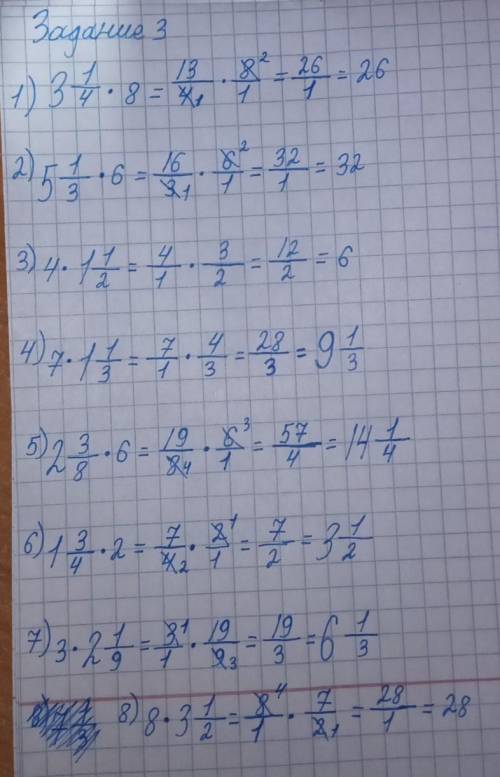 Задание 3
1) 3 1/4 · 8 = 13/4 1 · 8 2/1 = 26/1 = 26
2) 5 1/3 · 6 = 16/3 1 · 6 2/1 = 32/1 = 32
3) 4 · 1 1/2 = 4/1 · 3/2 = 12/2 = 6
4) 7 · 1 1/3 = 7/1 · 4/3 = 28/3 = 9 1/3
5) 2 3/8 · 6 = 19/8 4 · 6 3/1 = 57/4 = 14 1/4
6) 1 3/4 · 2 = 7/4 2 · 2 1/1 = 7/2 = 3 1/2
7) 3 · 2 1/9 = 3 1/1 · 19/9 3 = 19/3 = 6 1/3
8) 8 · 3 1/2 = 8 4/1 · 7/2 1 = 28/1 = 28